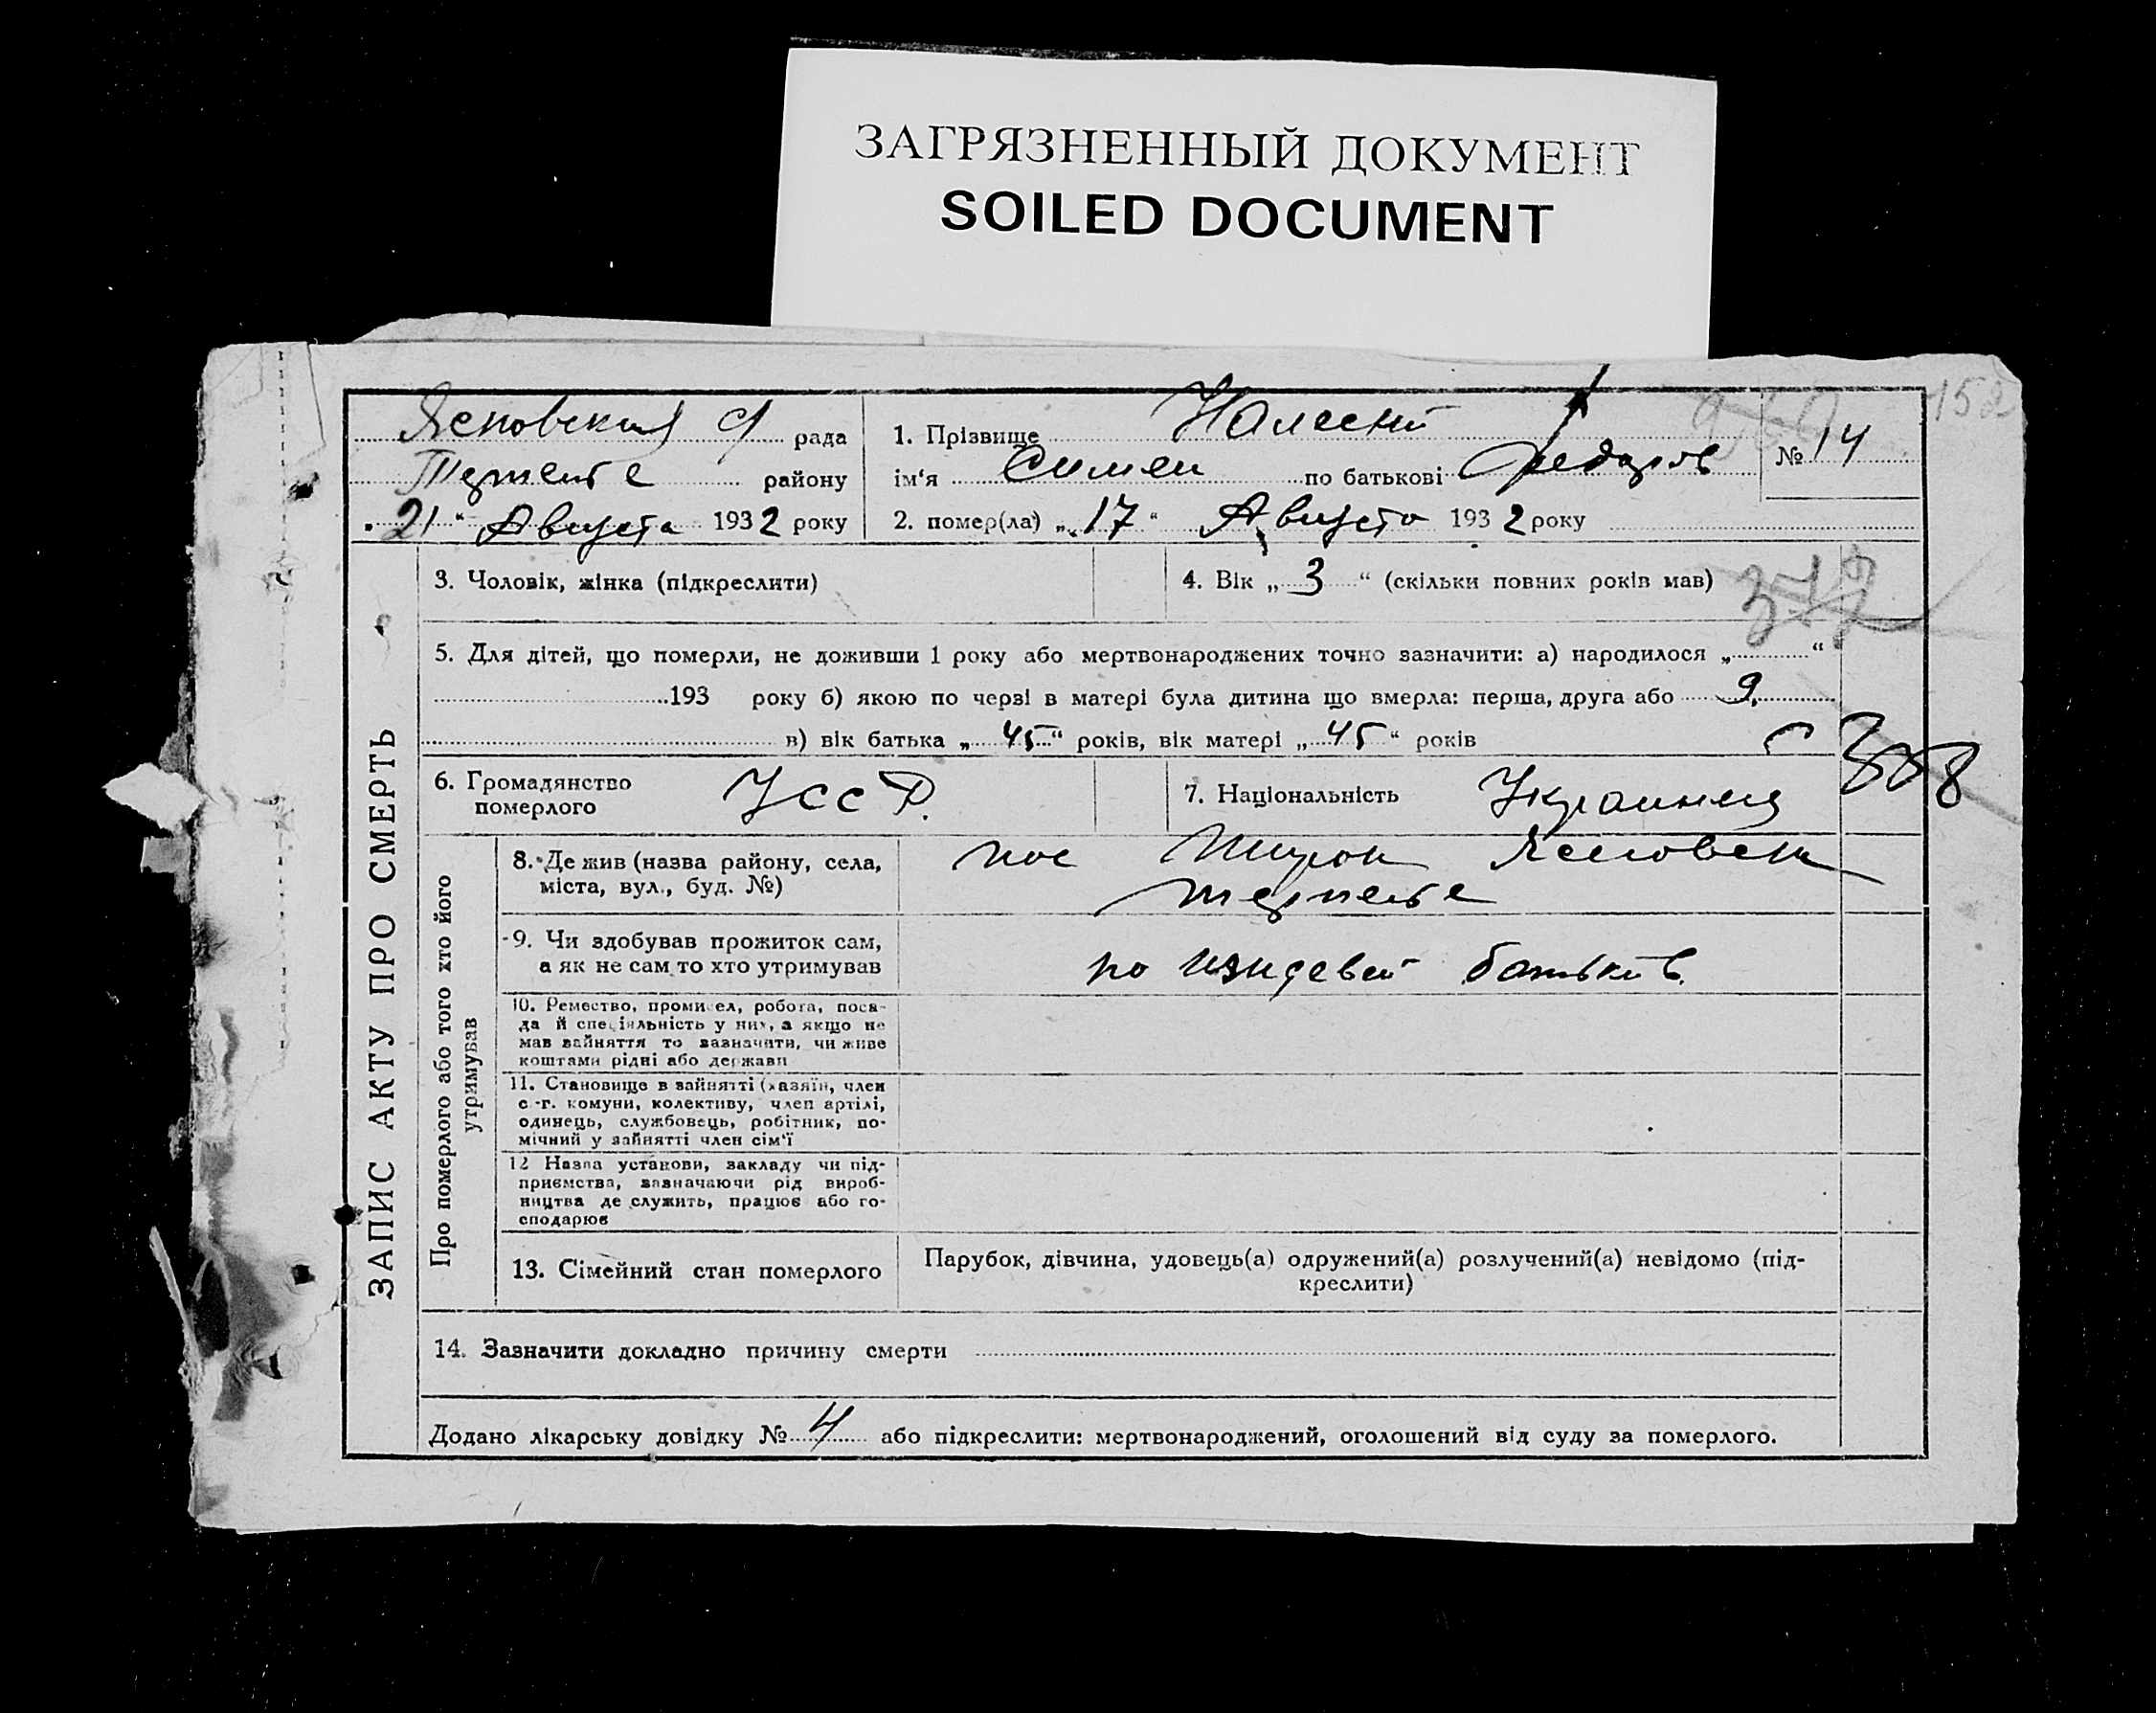 ЗАГРЯЗНЕННЫЙ ДОКУМЕНТ
SOILED DOCUMENT
рада
района
району
„21“ Августа 1932 року
1. Прізвище
ім'я Симен по батькові Федоров
№ 14
152
2. помер(ла) „17“ Августа 1932 року
3. Чоловік, жінка (підкреслити)
4. Вік „3“ (скільки повних років мав)
5. Для дітей, що померли, не доживши 1 року або мертвонароджених точно зазначити: а) народилося „ “
193 року б) якою по черзі в матері була дитина що вмерла: перша, друга або 9
в) вік батька „45“ років, вік матері „45“ років
6. Громадянство
померлого
УССР.
7. Національність
ЗАПИС АКТУ ПРО СМЕРТЬ
Про померлого або того хто його
утримував
8. Де жив (назва району, села,
міста, вул., буд. №)
9. Чи здобував прожиток сам,
а як не сам то хто утримував
батьків.
10. Ремество, промисел, робота, поса-
да й спеціяльність у них, а якщо не
мав зайняття то зазначити, чи живе
коштами рідні або держави
11. Становище в зайнятті (хазяїн, член
с.-г. комуни, колективу, член артілі,
одинець, службовець, робітник, по-
мічний у зайнятті член сім'ї
12 Назва установи, закладу чи під-
приємства, зазначаючи рід вироб-
ництва де служить, працює або го-
сподарює
13. Сімейний стан померлого
Парубок, дівчина, удовець(а) одружений(а) розлучений(а) невідомо (під-
креслити)
14. Зазначити докладно причину смерти
Додано лікарську довідку № 4 або підкреслити: мертвонароджений, оголошений від суду за померлого.